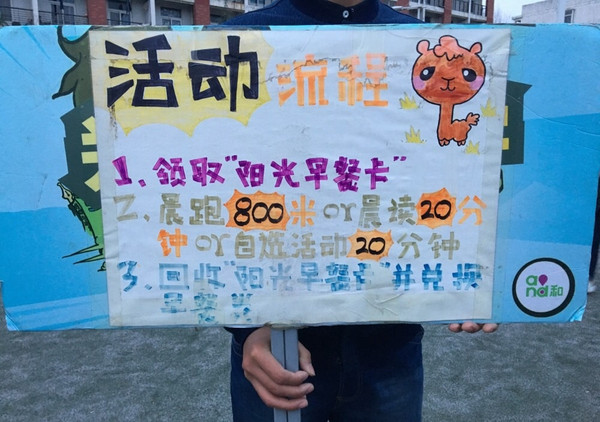 活动流程
1、领取"阳光早餐卡"
2、晨跑800米or晨读20分
钟or自选活动20分钟
3、回收"阳光早餐卡"并兑换
早餐券
and和